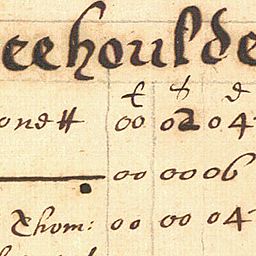 eehoulde
£ s d
ond 00 02 04
00 00 06
Thom: 00 00 04